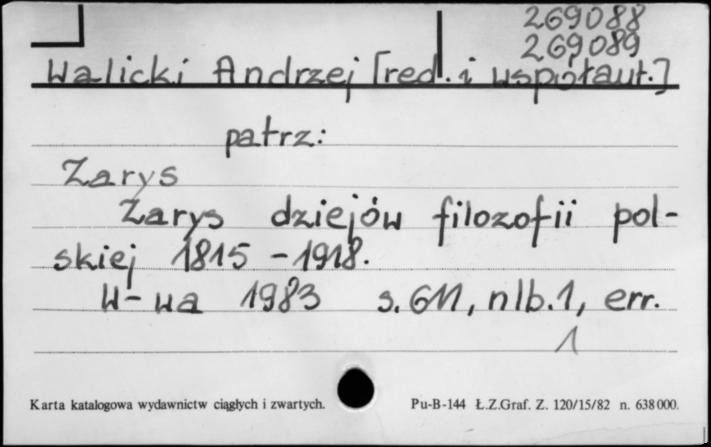 269088
269089
Walicki Andrzej [red. i współaut.]
patrz:
Zarys
Zarys dziejów filozofii pol-
skiej 1815 - 1918.
W-wa 1983 s. 611, nlb. 1, err.
1
Karta katalogowa wydawnictw ciągłych i zwartych. Pu-B-144 Ł.Z.Graf. Z. 120/15/82 n. 638000.